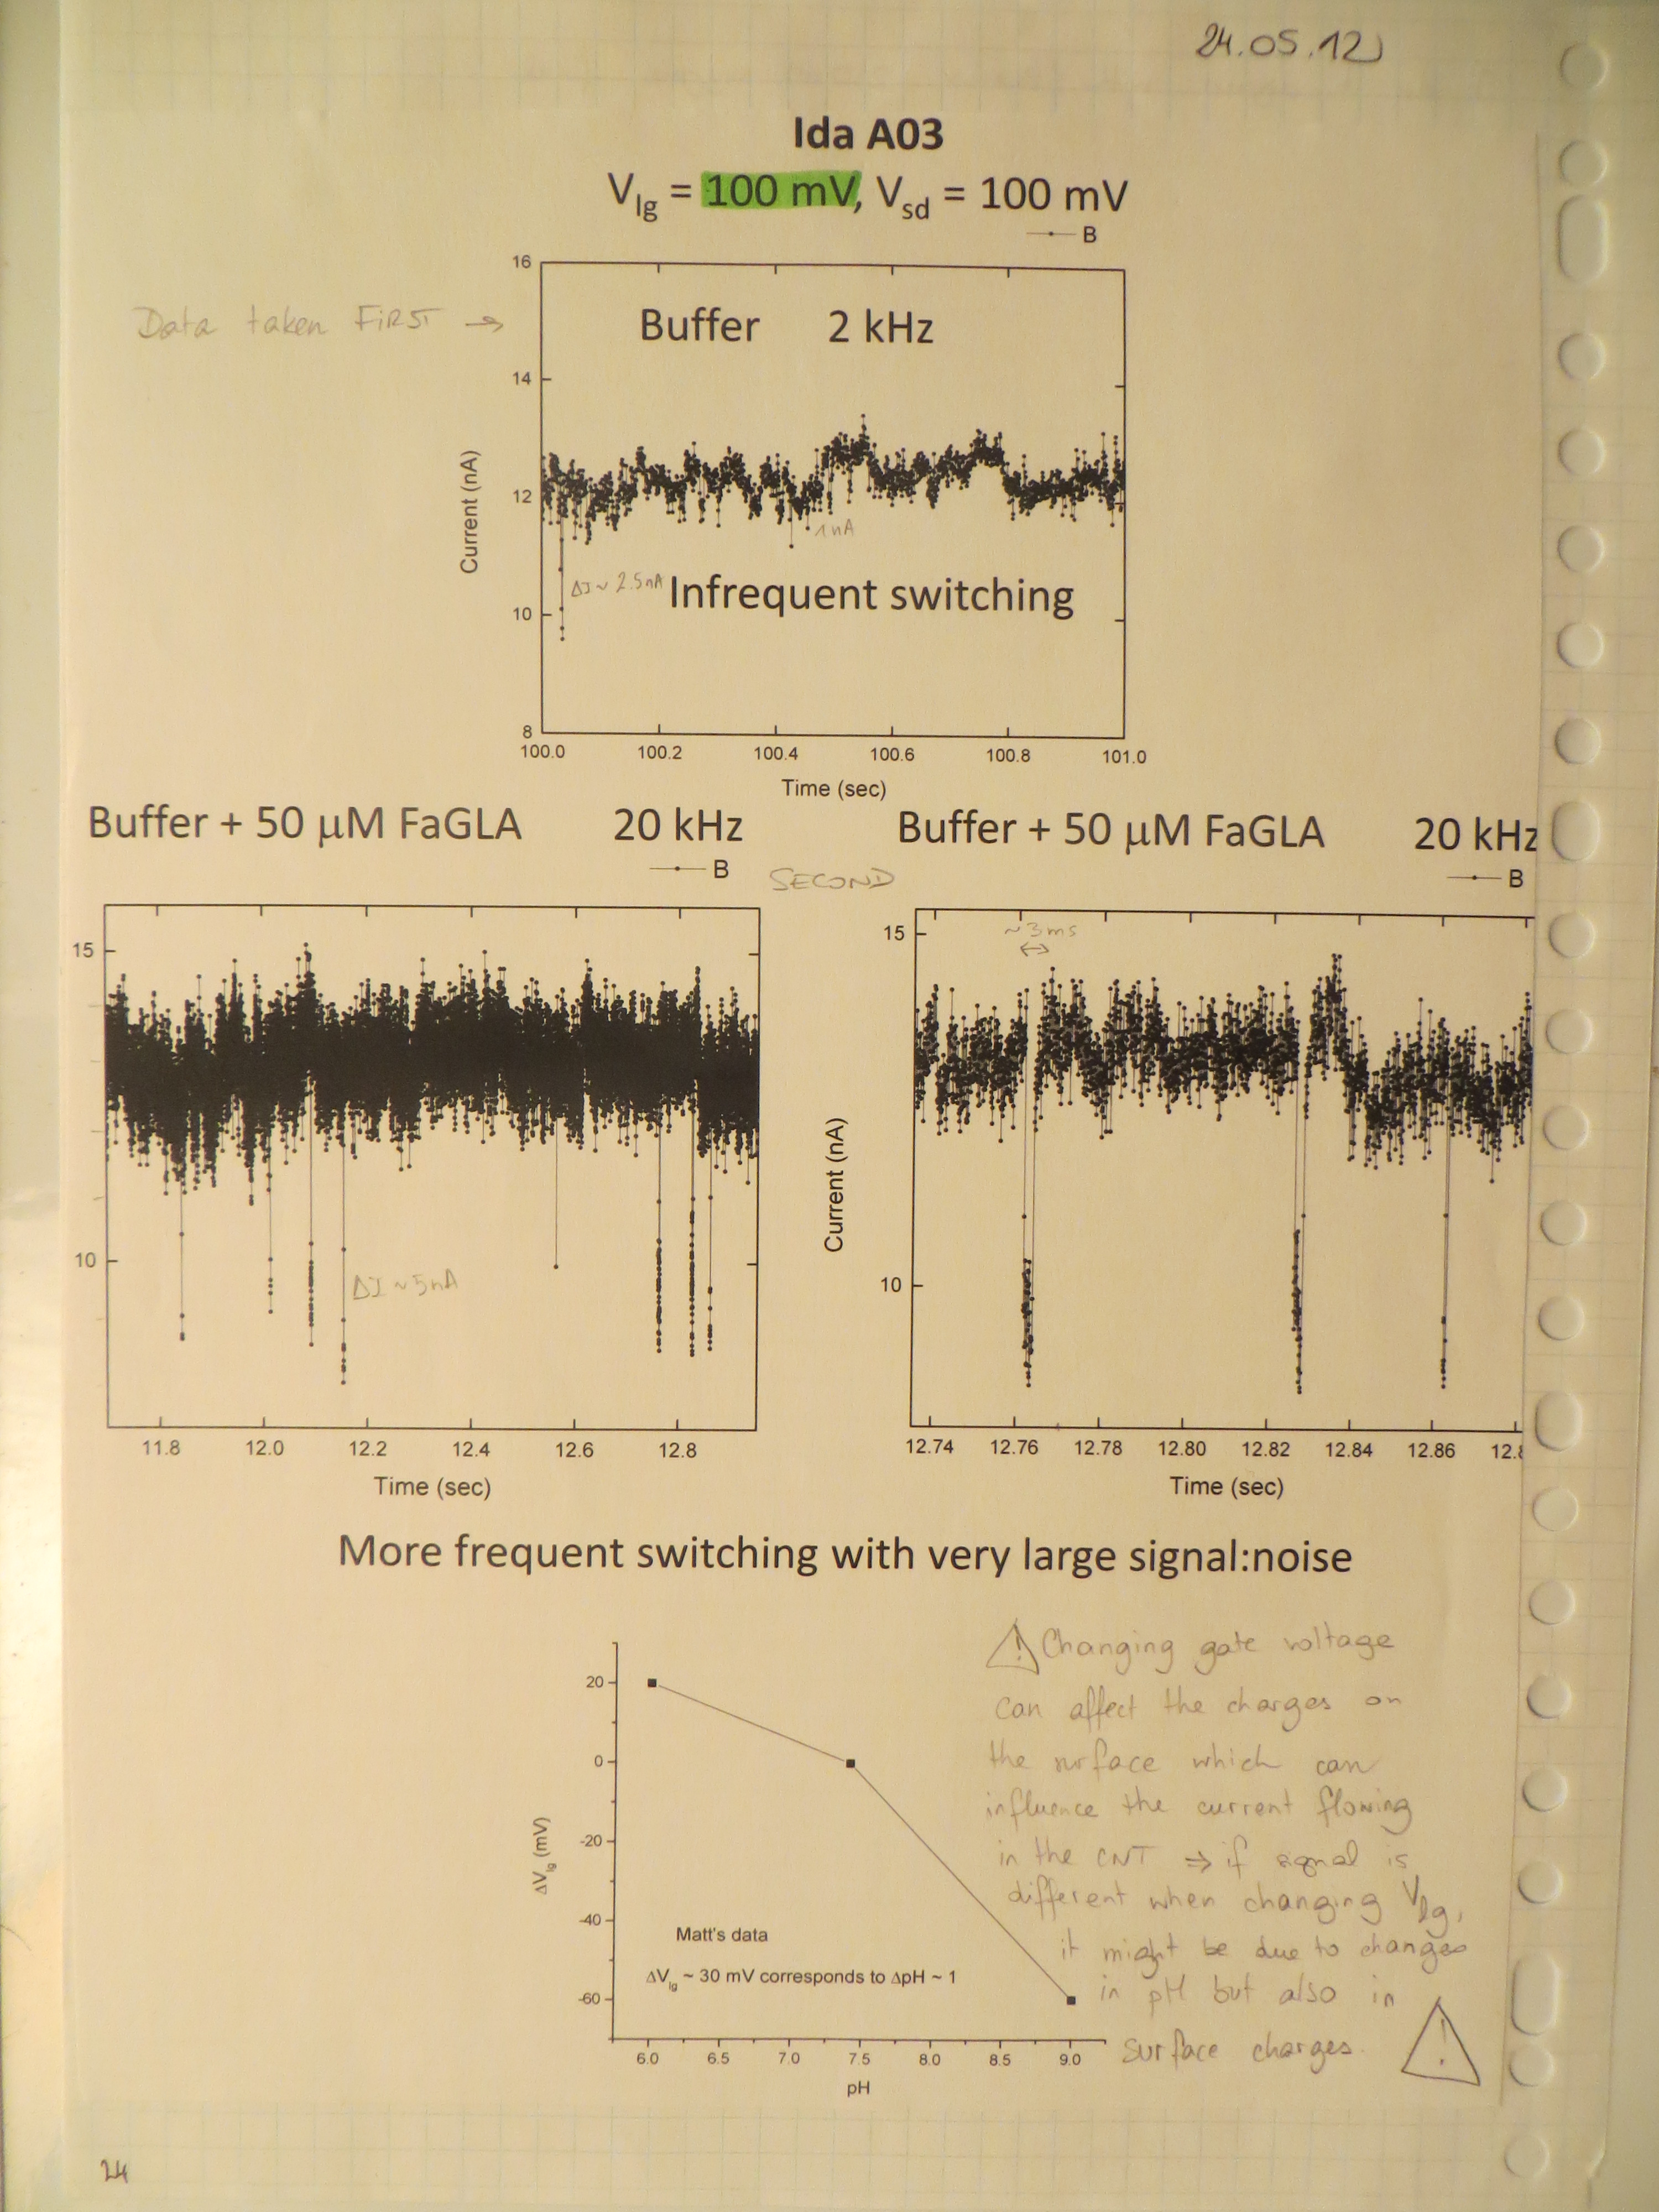 24.05.12
Ida A03
Vlg = 100 mV, Vsd = 100 mV
B
16
Data taken FIRST →
Buffer 2 kHz
14
Current (nA)
12
1nA
ΔI ~ 2.5nA
Infrequent switching
10
8
100.0 100.2 100.4 100.6 100.8 101.0
Time (sec)
Buffer + 50 μM FaGLA 20 kHz
B
SECOND
Buffer + 50 μM FaGLA 20 kHz
B
15
10
ΔI ~ 5nA
11.8 12.0 12.2 12.4 12.6 12.8
Time (sec)
15
~3ms
Current (nA)
10
12.74 12.76 12.78 12.80 12.82 12.84 12.86 12.8
Time (sec)
More frequent switching with very large signal:noise
20
0
-20
-40
-60
ΔVlg (mV)
Matt's data
ΔVlg ~ 30 mV corresponds to ΔpH ~ 1
6.0 6.5 7.0 7.5 8.0 8.5 9.0
pH
! Changing gate voltage
can affect the charges on
the surface which can
influence the current flowing
in the CNT ⇒ if signal is
different when changing Vlg,
it might be due to changes
in pH but also in
surface charges.
!
24